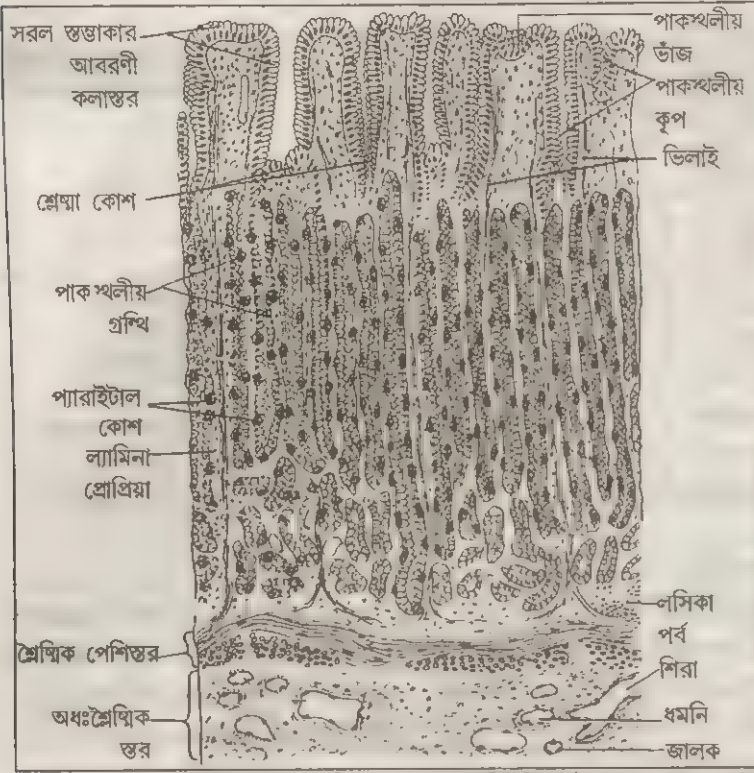 সরল স্তম্ভাকার
আবরণী
কলাস্তর
শ্লেষ্মা কোশ
পাকস্থলীয়
গ্রন্থি
প্যারাইটাল
কোশ
ল্যামিনা
প্রোপ্রিয়া
শ্লৈষ্মিক পেশিস্তর
অধঃশ্লৈষ্মিক
স্তর
পাকস্থলীয়
ভাঁজ
পাকস্থলীয়
কূপ
ভিলাই
লসিকা
পর্ব
শিরা
ধমনি
জালক